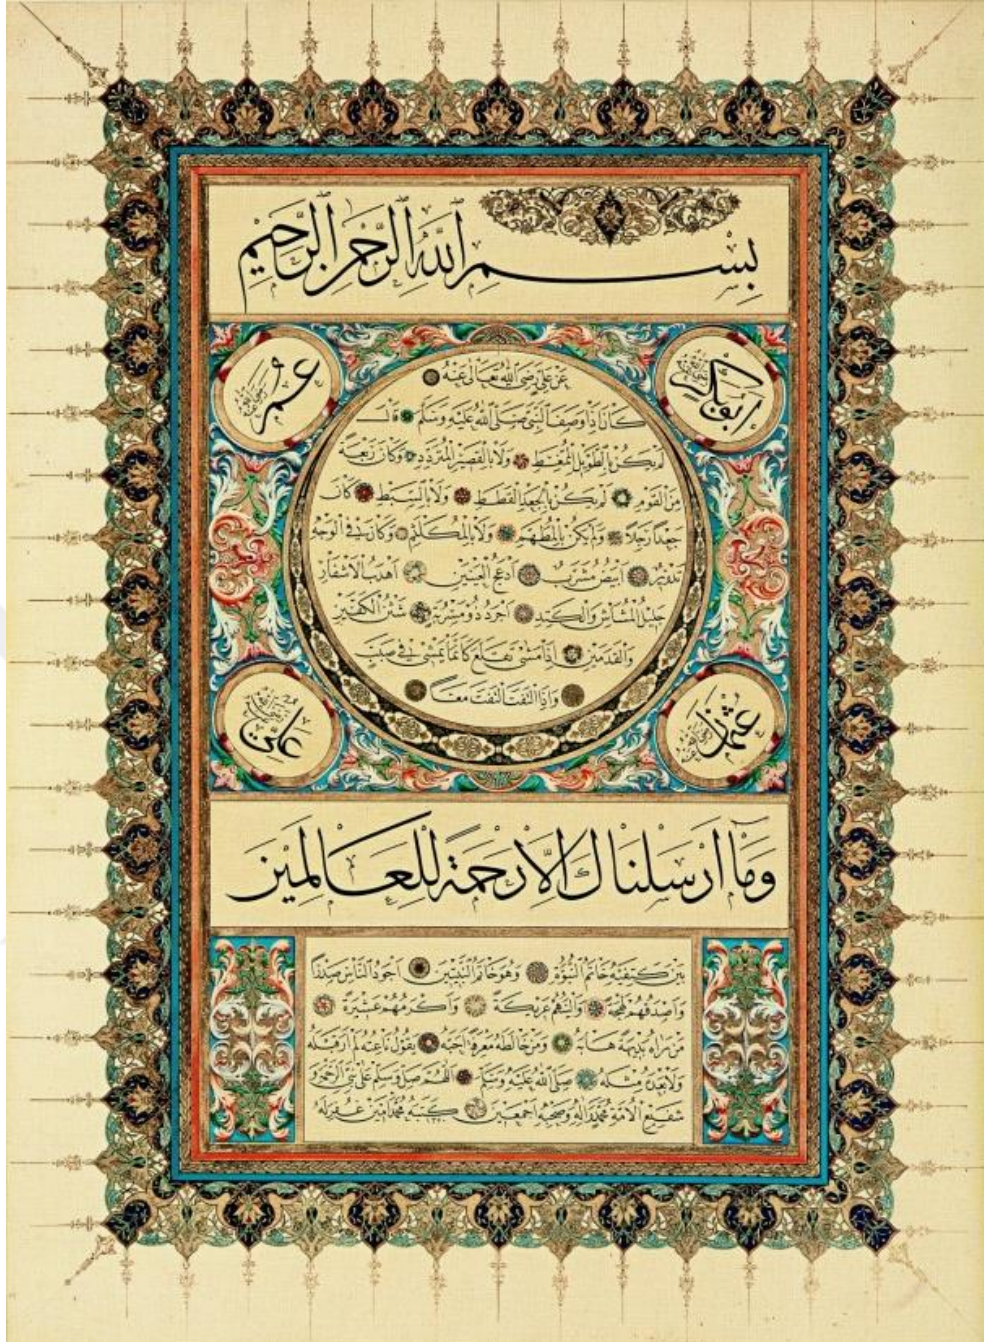 بِسْمِ اللّٰهِ الرَّحْمٰنِ الرَّحِيمِ
ابو بكر رضي الله عنه
عمر رضي الله عنه
عن علي رضي الله تعالى عنه
كان اذا وصف النبي صلى الله عليه وسلم قال
لم يكن بالطويل الممغط ولا بالقصير المتردد وكان ربعة
من القوم لم يكن بالجعد القطط ولا بالسبط كان
جعدا رجلا ولم يكن بالمطهم ولا بالمكلثم وكان في الوجه
تدوير ابيض مشرب ادعج العينين اهدب الاشفار
جليل المشاش والكتد اجرد ذو مسربة شثن الكفين
والقدمين اذا مشى تقلع كانما يمشي في صبب
واذا التفت التفت معا
عثمان رضي الله عنه
علي رضي الله عنه
وما ارسلناك الا رحمة للعالمين
بين كتفيه خاتم النبوة وهو خاتم النبيين اجود الناس صدرا
واصدقهم لهجة والينهم عريكة واكرمهم عشيرة
من راه بديهة هابه ومن خالطه معرفة احبه يقول ناعته لم ار قبله
ولا بعده مثله صلى الله عليه وسلم اللهم صل وسلم على نبي الرحمة و
شفيع الامة محمد واله وصحبه اجمعين كتبه محمد امين غفر له